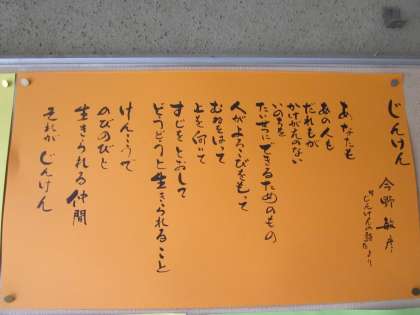 じんけん
今野 敏彦
"じんけんの詩"より
あなたも
あの人も
だれもが
かけがえのない
いのちを
たいせつにできるためのもの
人がよろこびをもって
むねをはって
上を向いて
すじをとおして
どうどうと生きられること
けんこうで
のびのびと
生きられる仲間
それが じんけん